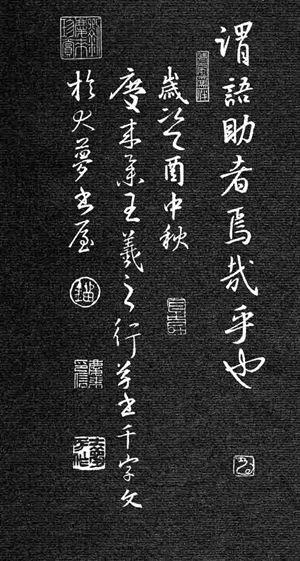 謂語助者焉哉乎也
歲癸酉中秋
慶来集王羲之行草書千字文
於大夢書屋